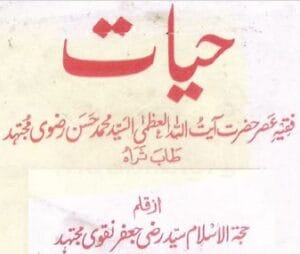 حیات
فقیہ عصر حضرت آیت اللہ العظمیٰ السید محمد حسن رضوی مجتہد
طاب ثراہ
از قلم
حجۃ الاسلام سید رضی جعفر نقوی مجتہد